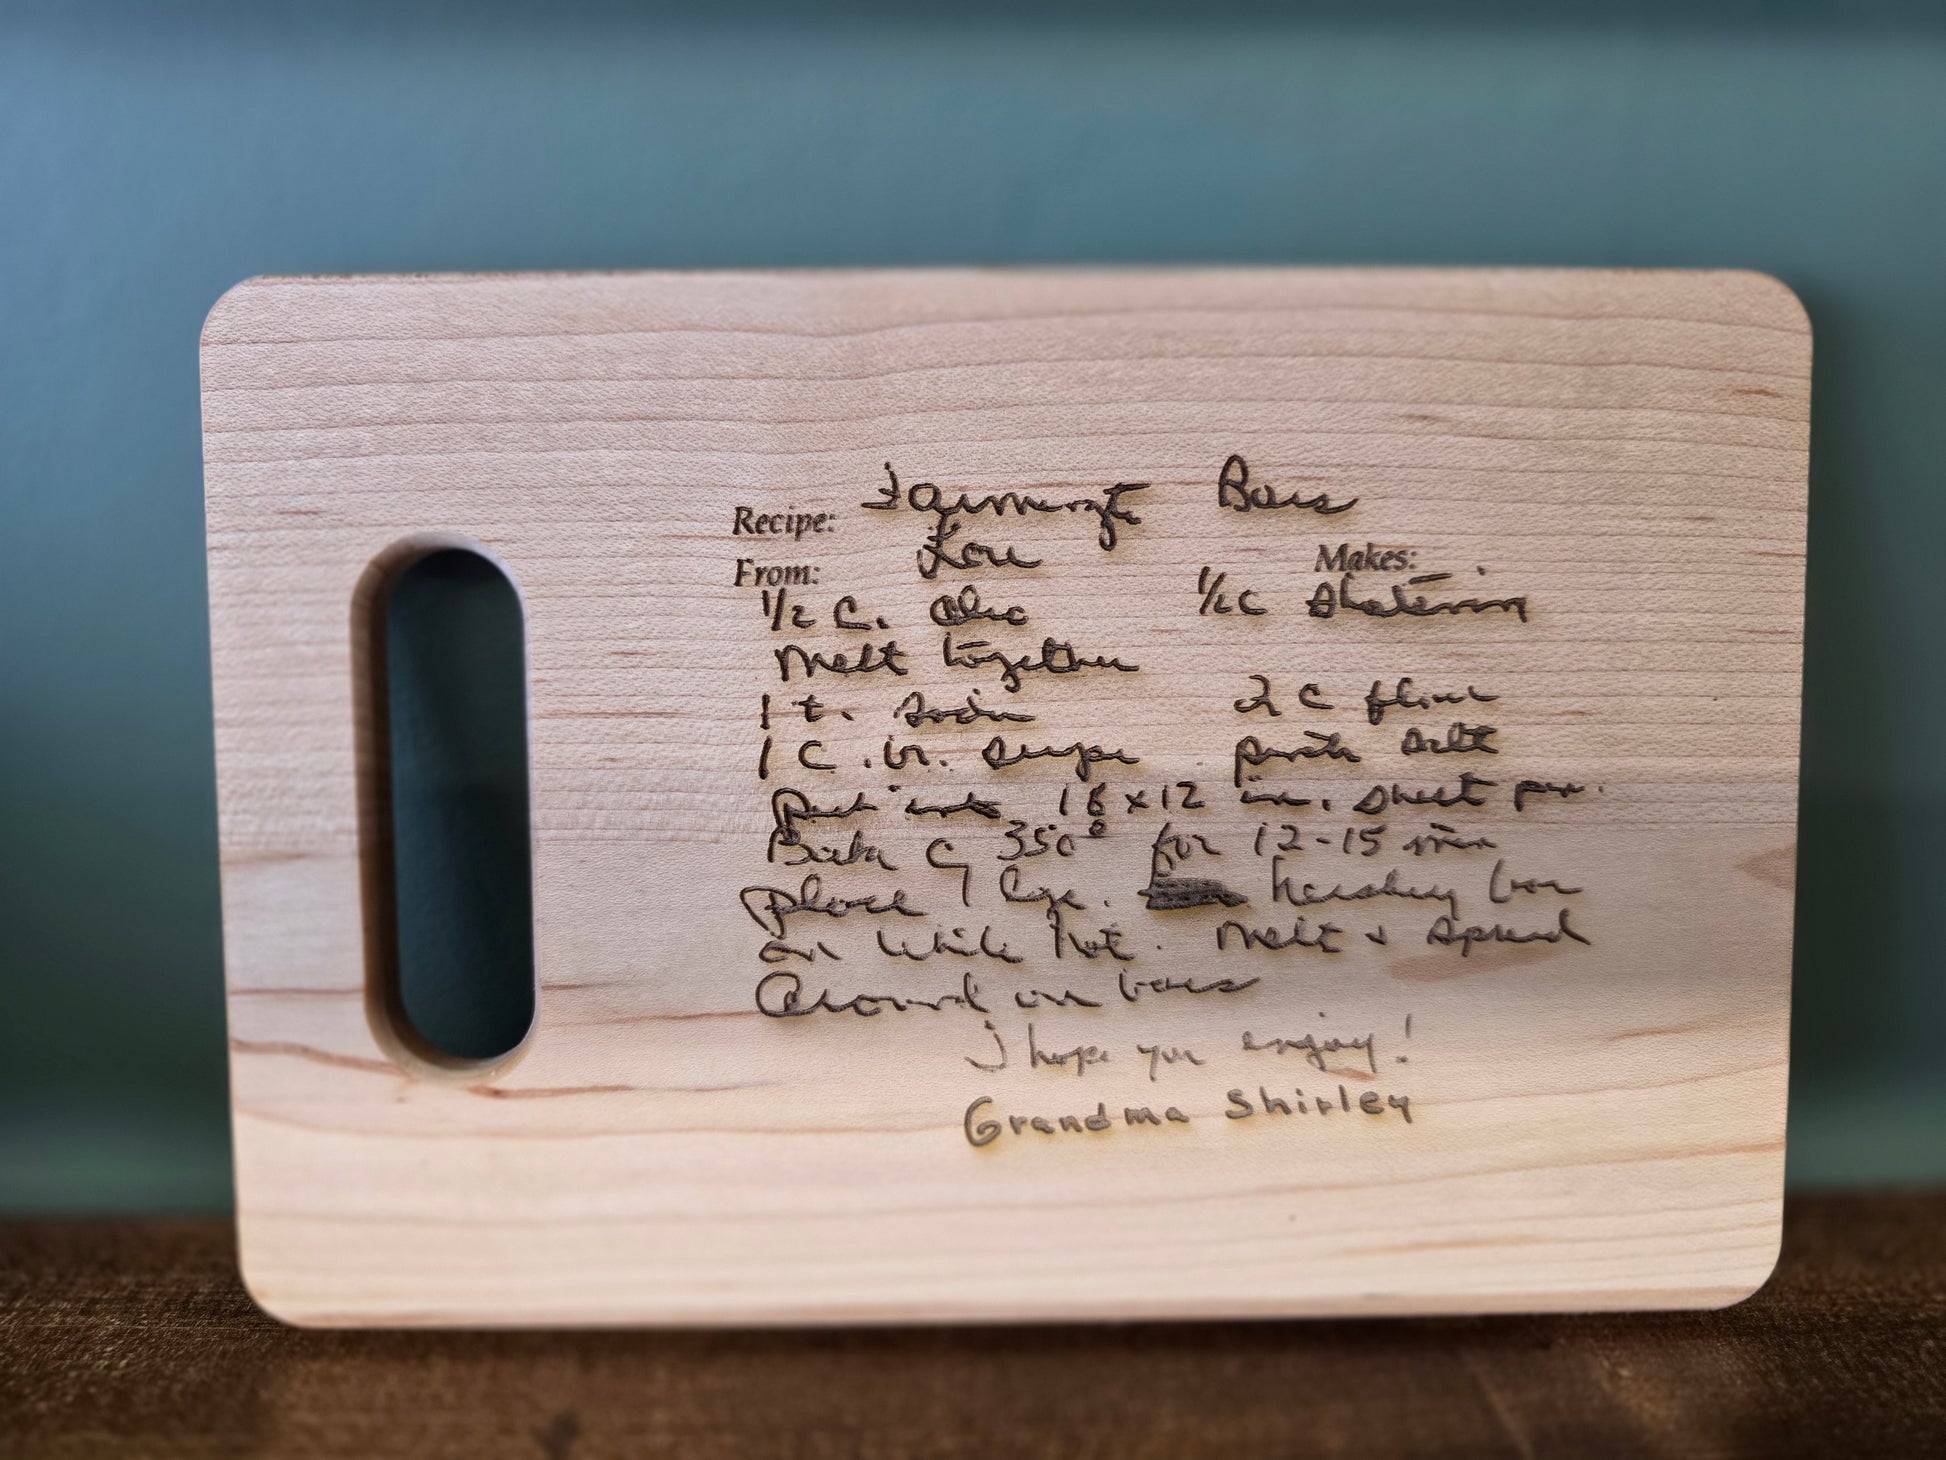 Recipe: Farmergte Bars
From: Lou Makes:
1/2 C. oleo 1/2 C shortening
Melt together
1 t. soda 2 C flour
1 C. br. sugar pinch salt
Put into 18 x 12 in. sheet pan.
Bake @ 350° for 12-15 min
place 1 lge. hershey bar
on while hot. Melt + spread
Around on bars
I hope you enjoy!
Grandma Shirley